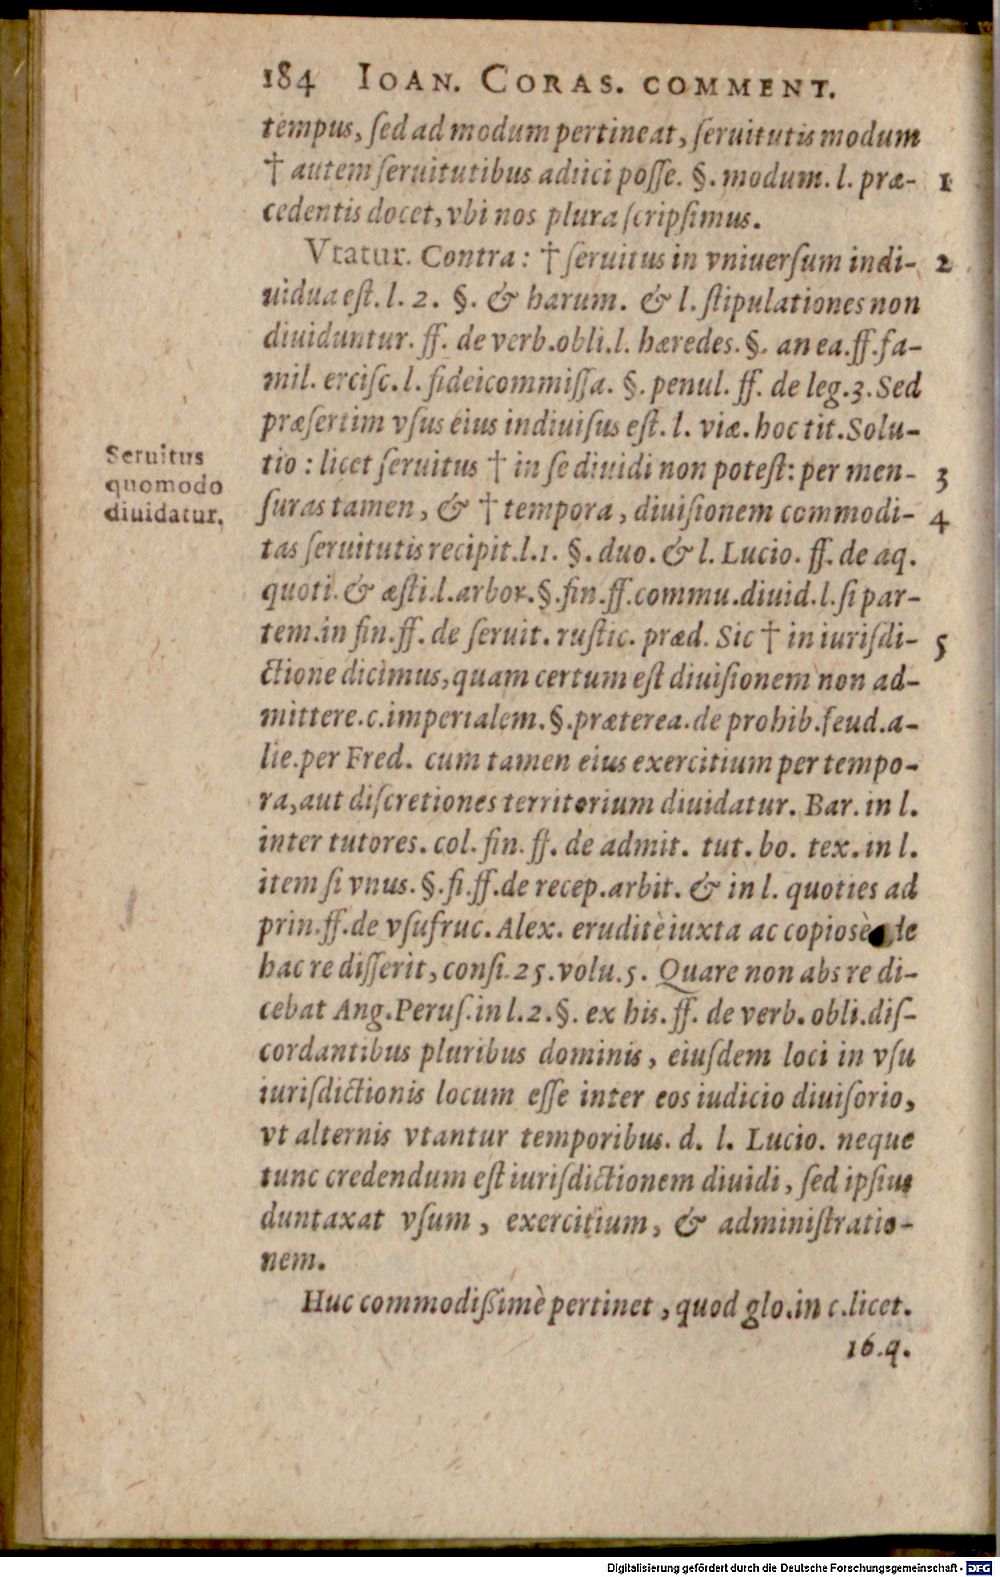 184 IOAN. CORAS. COMMENT.
tempus, ſed ad modum pertineat, ſeruitutis modum
† autem ſeruitutibus adiici poſſe. §. modum. l. præ- 1
cedentis docet, vbi nos plura ſcripſimus.
Vtatur. Contra: † ſeruitus in vniuerſum indi- 2
uidua eſt. l. 2. §. & harum. & l. ſtipulationes non
diuiduntur. ff. de verb. obli. l. hæredes. §. an ea. ff. fa-
mil. erciſc. l. fideicommiſſa. §. penul. ff. de leg. 3. Sed
præſertim vſus eius indiuiſus eſt. l. viæ. hoc tit. Solu-
Seruitus
quomodo
diuidatur.
tio: licet ſeruitus † in ſe diuidi non poteſt: per men- 3
ſuras tamen, & † tempora, diuiſionem commodi- 4
tas ſeruitutis recipit. l. 1. §. duo. & l. Lucio. ff. de aq.
quoti. & æſti. l. arbor. §. fin. ff. commu. diuid. l. ſi par-
tem. in fin. ff. de ſeruit. ruſtic. præd. Sic † in iuriſdi- 5
ctione dicimus, quam certum eſt diuiſionem non ad-
mittere. c. imperialem. §. præterea. de prohib. feud. a-
lie. per Fred. cum tamen eius exercitium per tempo-
ra, aut diſcretiones territorium diuidatur. Bar. in l.
inter tutores. col. fin. ff. de admit. tut. bo. tex. in l.
item ſi vnus. §. fi. ff. de recep. arbit. & in l. quoties ad
prin. ff. de vſufruc. Alex. eruditè iuxta ac copiosè de
hac re diſſerit, conſi. 25. volu. 5. Quare non abs re di-
cebat Ang. Peruſ. in l. 2. §. ex his. ff. de verb. obli. diſ-
cordantibus pluribus dominis, eiuſdem loci in vſu
iuriſdictionis locum eſſe inter eos iudicio diuiſorio,
vt alternis vtantur temporibus. d. l. Lucio. neque
tunc credendum eſt iuriſdictionem diuidi, ſed ipſius
duntaxat vſum, exercitium, & adminiſtratio-
nem.
Huc commodiſſimè pertinet, quod glo. in c. licet.
16. q.
Digitalisierung gefördert durch die Deutsche Forschungsgemeinschaft - DFG